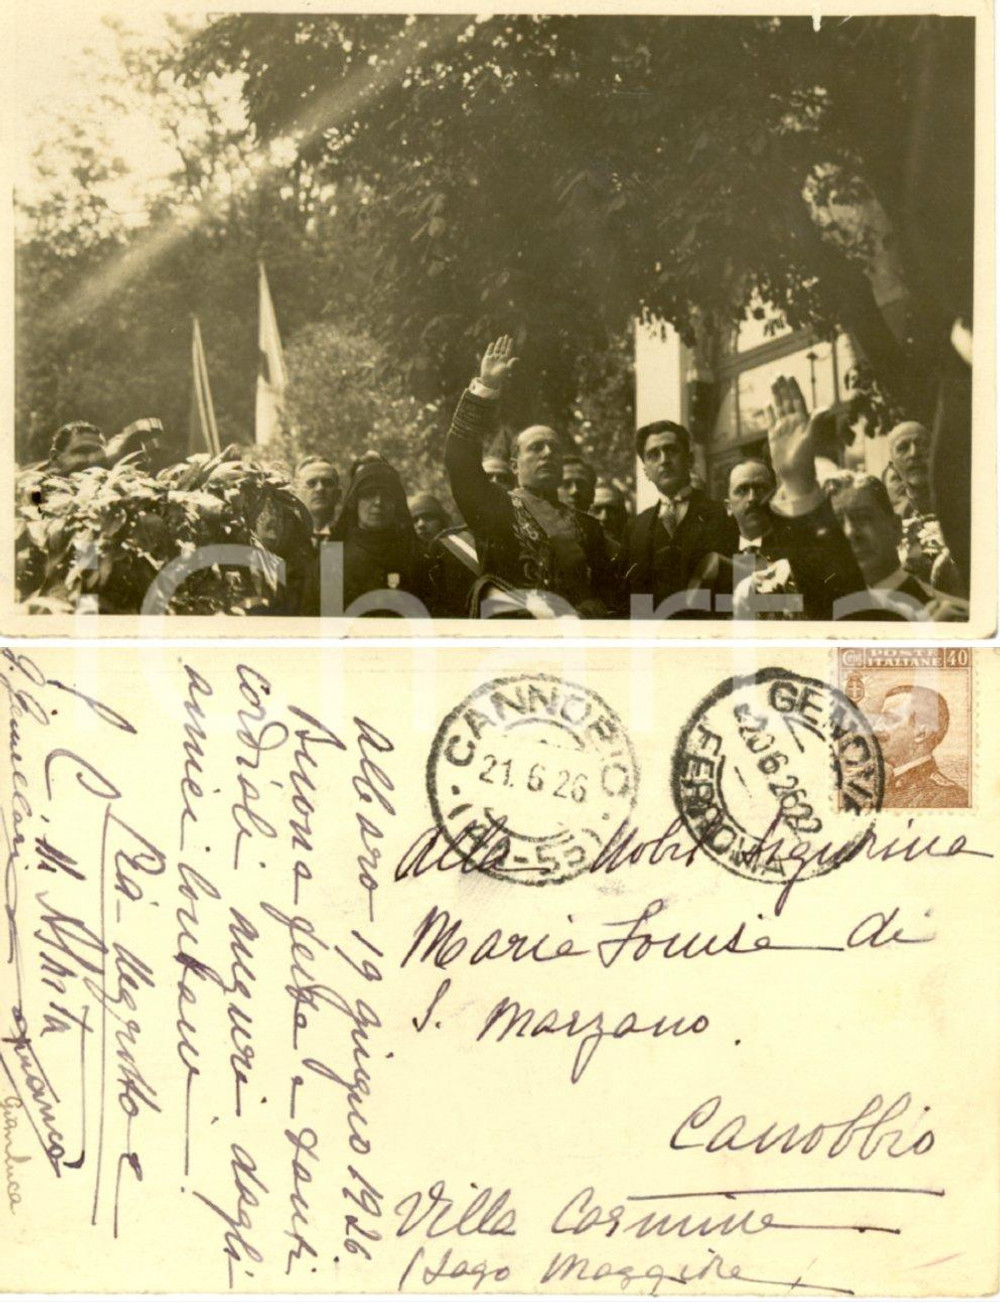 iCharta
CANNOBIO
21.6.26
GENOVA
20.6.26
FERROVIA
POSTE
ITALIANE
40
Albaro 19 giugno 1926
Buona festa e tanti
cordiali auguri dagli
amici lontani
Alla Nobil Signorina
Maria Louisa di
S. Marzano.
Cannobbio
Villa Carmine
(Lago Maggiore
Gianluca